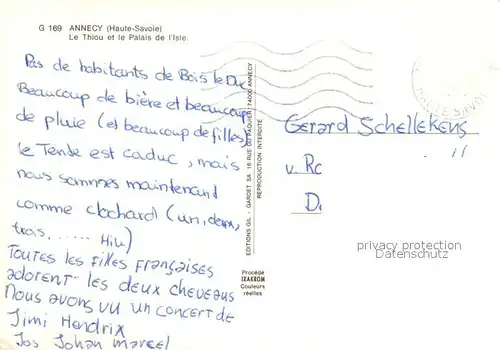 G 169 ANNECY (Haute-Savoie)
Le Thiou et le Palais de l'Isle.
Pas de habitants de Bois le Duc
Beaucoup de bière et beaucoup
de pluie (et beaucoup de filles)
le Tente est caduc, mais
nous sommes maintenant
comme clochard (un, deux,
trois, ...... Hiu)
Toutes les filles françaises
adorent les deux chevaus
Nous avons vu un concert de
Jimi Hendrix
Jos Johan Marcel
EDITIONS GIL - GARDET SA 18 RUE DU PAQUIER 74000 ANNECY
REPRODUCTION INTERDITE
Procédé
IXAKROM
Couleurs
réelles
HAUTE SAVOIE
Gerard Schellekens
v. Rc
D.
privacy protection
Datenschutz